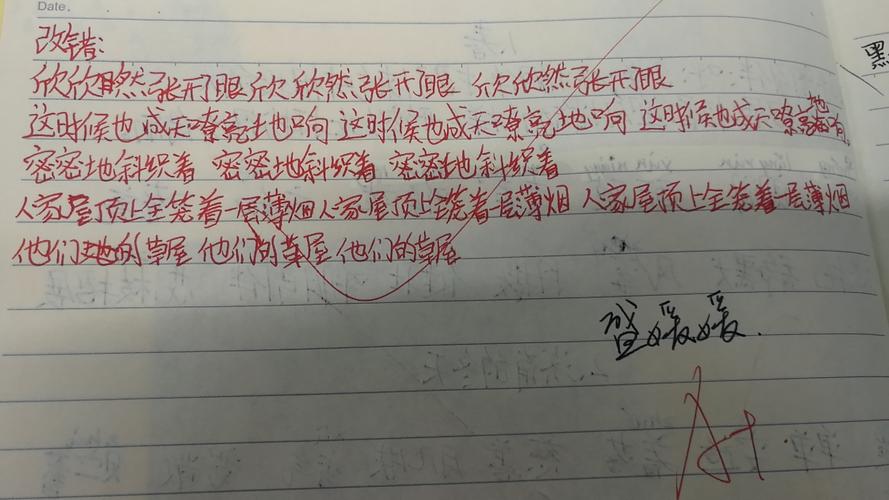 Date.
改错:
欣欣然张开了眼 欣欣然张开了眼 欣欣然张开了眼
这时候也成天嘹亮地响 这时候也成天嘹亮地响 这时候也成天嘹亮地响
密密地斜织着 密密地斜织着 密密地斜织着
人家屋顶上全笼着一层薄烟 人家屋顶上全笼着一层薄烟 人家屋顶上全笼着一层薄烟
他们的草屋 他们的草屋 他们的草屋
黑
A+